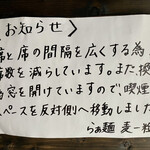 お知らせ〉
席と席の間隔を広くする為
席数を減らしています。また、換
為窓を開けていますので、喫煙
ペースを反対側へ移動しました
らぁ麺 麦一粒